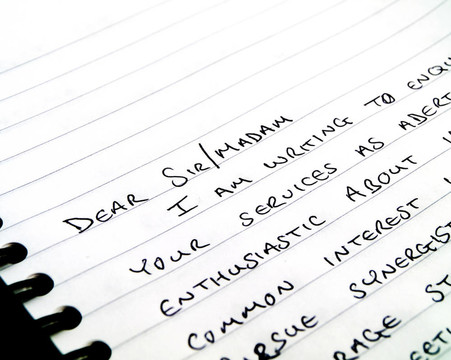 DEAR SIR/MADAM
I AM WRITING TO ENQU
YOUR SERVICES AS ADERT
ENTHUSIASTIC ABOUT
COMMON INTEREST
PURSUE SYNERGIST
RAGE ST